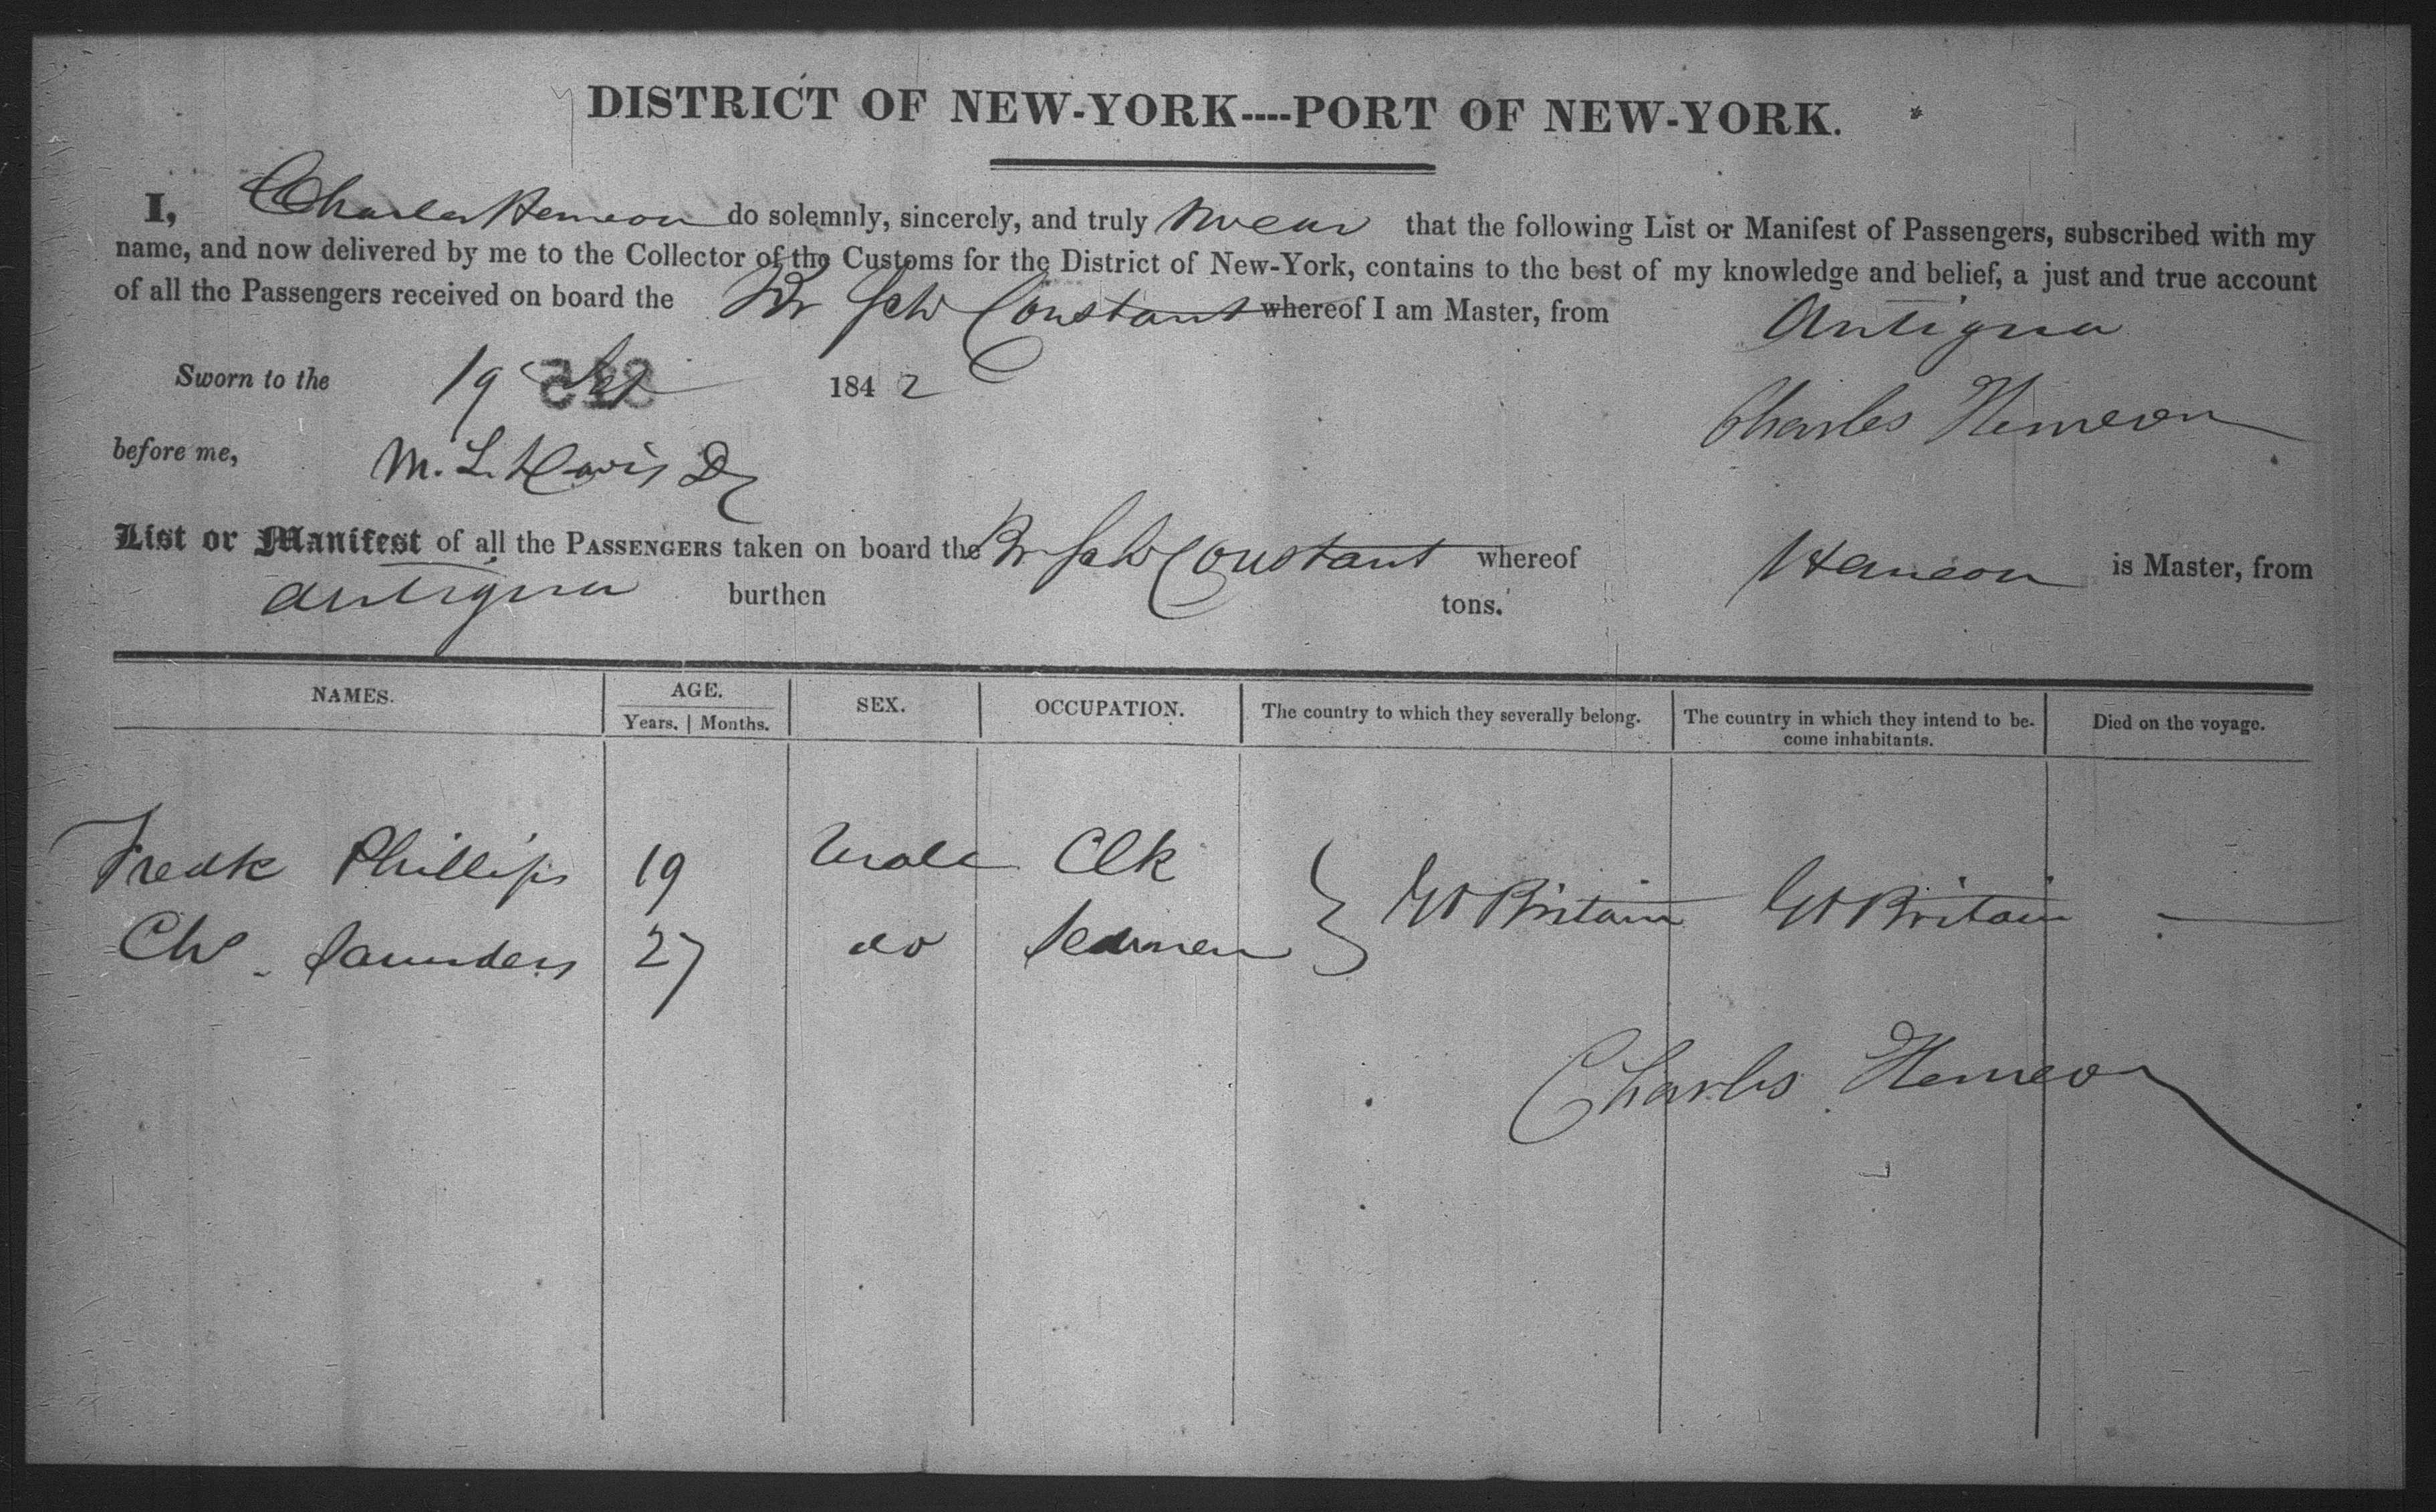 DISTRICT OF NEW-YORK----PORT OF NEW-YORK.
I, Charles Hemeon do solemnly, sincerely, and truly swear that the following List or Manifest of Passengers, subscribed with my
name, and now delivered by me to the Collector of the Customs for the District of New-York, contains to the best of my knowledge and belief, a just and true account
of all the Passengers received on board the Br Sch Constant whereof I am Master, from Antigua
Sworn to the 19 1842
Charles Hemeon
before me, M. L. Davis
List or Manifest of all the PASSENGERS taken on board the Br Sch Constant whereof Hemeon is Master, from
Antigua burthen tons.
NAMES. AGE. SEX. OCCUPATION. The country to which they severally belong. The country in which they intend to be- Died on the voyage.
Years. | Months. come inhabitants.
Fredk Phillips 19 Male Clk
Gt Britain Gt Britain —
Chs. Saunders 27 do Seaman
Charles Hemeon